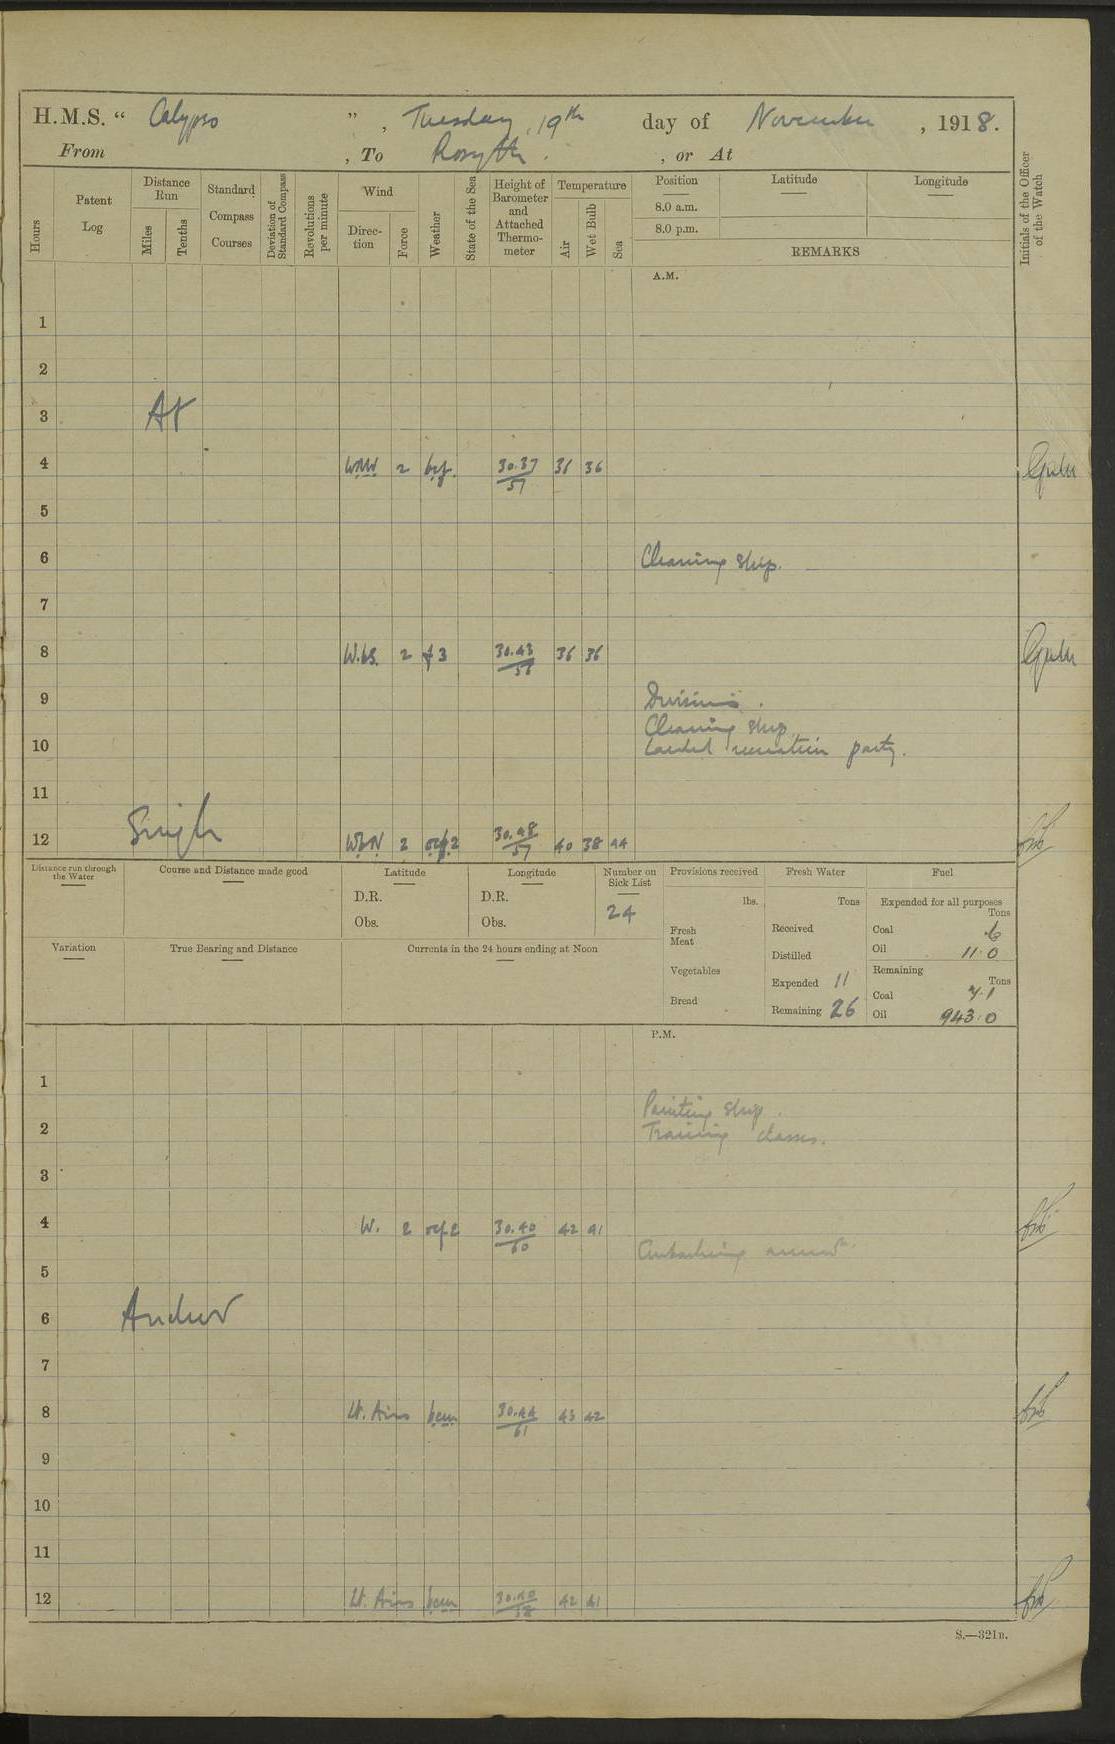 H.M.S. “ Calypso ” , Tuesday, 19th day of November , 1918.
From , To Rosyth. , or At
Hours
Patent Log
Distance Run
Miles
Tenths
Standard Compass Courses
Deviation of Standard Compass
Revolutions per minute
Wind
Direction
Force
Weather
State of the Sea
Height of Barometer and Attached Thermometer
Temperature
Air
Wet Bulb
Sea
Position Latitude Longitude
8.0 a.m.
8.0 p.m.
REMARKS
Initials of the Officer of the Watch
A.M.
1
2
3 At
4 WNW 2 bcf. 30.37/57 36
5
6 Cleaning ship.
7
8 W.bS. 2 f3 30.43 36 36
9 Divisions.
Cleaning ship
10 Landed recreation party.
11
12 Single WbN 2 ocf.2 30.48/57 40 38 44
Distance run through the Water
Course and Distance made good
Latitude
D.R.
Obs.
Longitude
D.R.
Obs.
Number on Sick List
24
Provisions received
lbs.
Fresh Meat
Vegetables
Bread
Fresh Water
Tons
Received
Distilled
Expended 11
Remaining 26
Fuel
Expended for all purposes
Tons
Coal
Oil 11.0
Remaining
Tons
Coal 7.1
Oil 943.0
Variation
True Bearing and Distance
Currents in the 24 hours ending at Noon
P.M.
1
Painting ship.
2 Training classes.
3
4 W. 2 ocf2 30.40/60 42 41
5
6 Anchor
7
8 Lt. Airs bcm 30.44/61 43 42
9
10
11
12 Lt. Airs bcm 30.40/58 42 41
S.—321B.